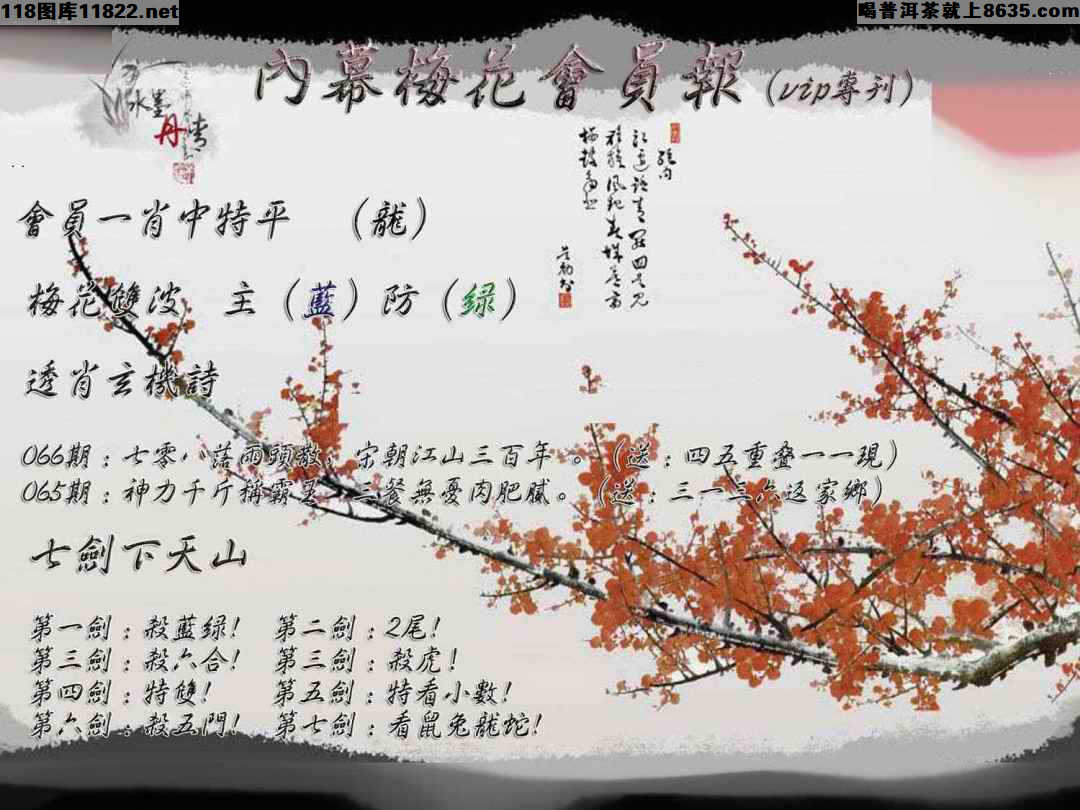 118图库11822.net
喝普洱茶就上8635.com
內幕梅花會員報(vip專刊)
水墨
丹青
會員一肖中特平 (龍)
梅花雙波 主(藍)防(绿)
透肖玄機詩
066期：七零八落雨頭散；宋朝江山三百年。(送：四五重叠一一現)
065期：神力千斤稱霸王，三餐無憂肉肥膩。(送：三一三六返家鄉)
七劍下天山
第一劍：殺藍绿! 第二劍：2尾!
第三劍：殺六合! 第三劍：殺虎!
第四劍：特雙! 第五劍：特看小數!
第六劍：殺五門! 第七劍：看鼠兔龍蛇!